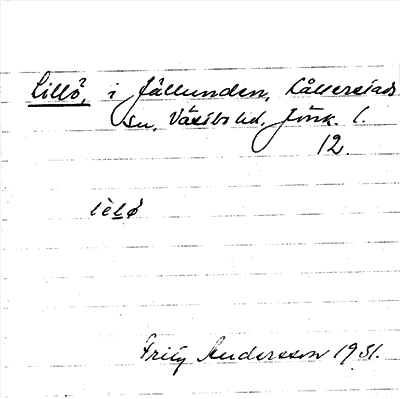 Lillö, i Jällunden, Kållerstads
sn, Västbo hd, Jönk. l.
12.
lèlø
Fritz Andersson 1931.